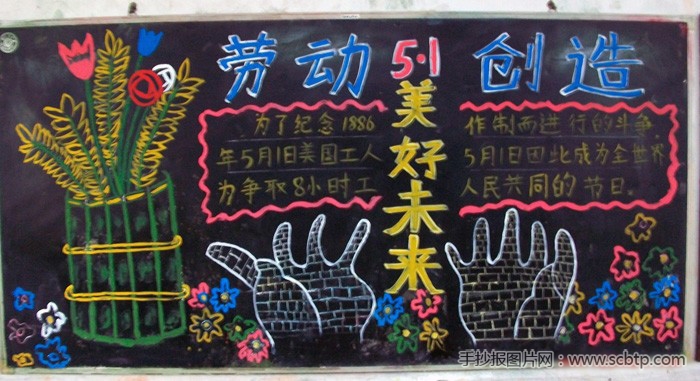 劳动 5·1 创造
美好未来
为了纪念1886
年5月1日美国工人
为争取8小时工
作制而进行的斗争
5月1日因此成为全世界
人民共同的节日。
手抄报图片网：www.scbtp.com